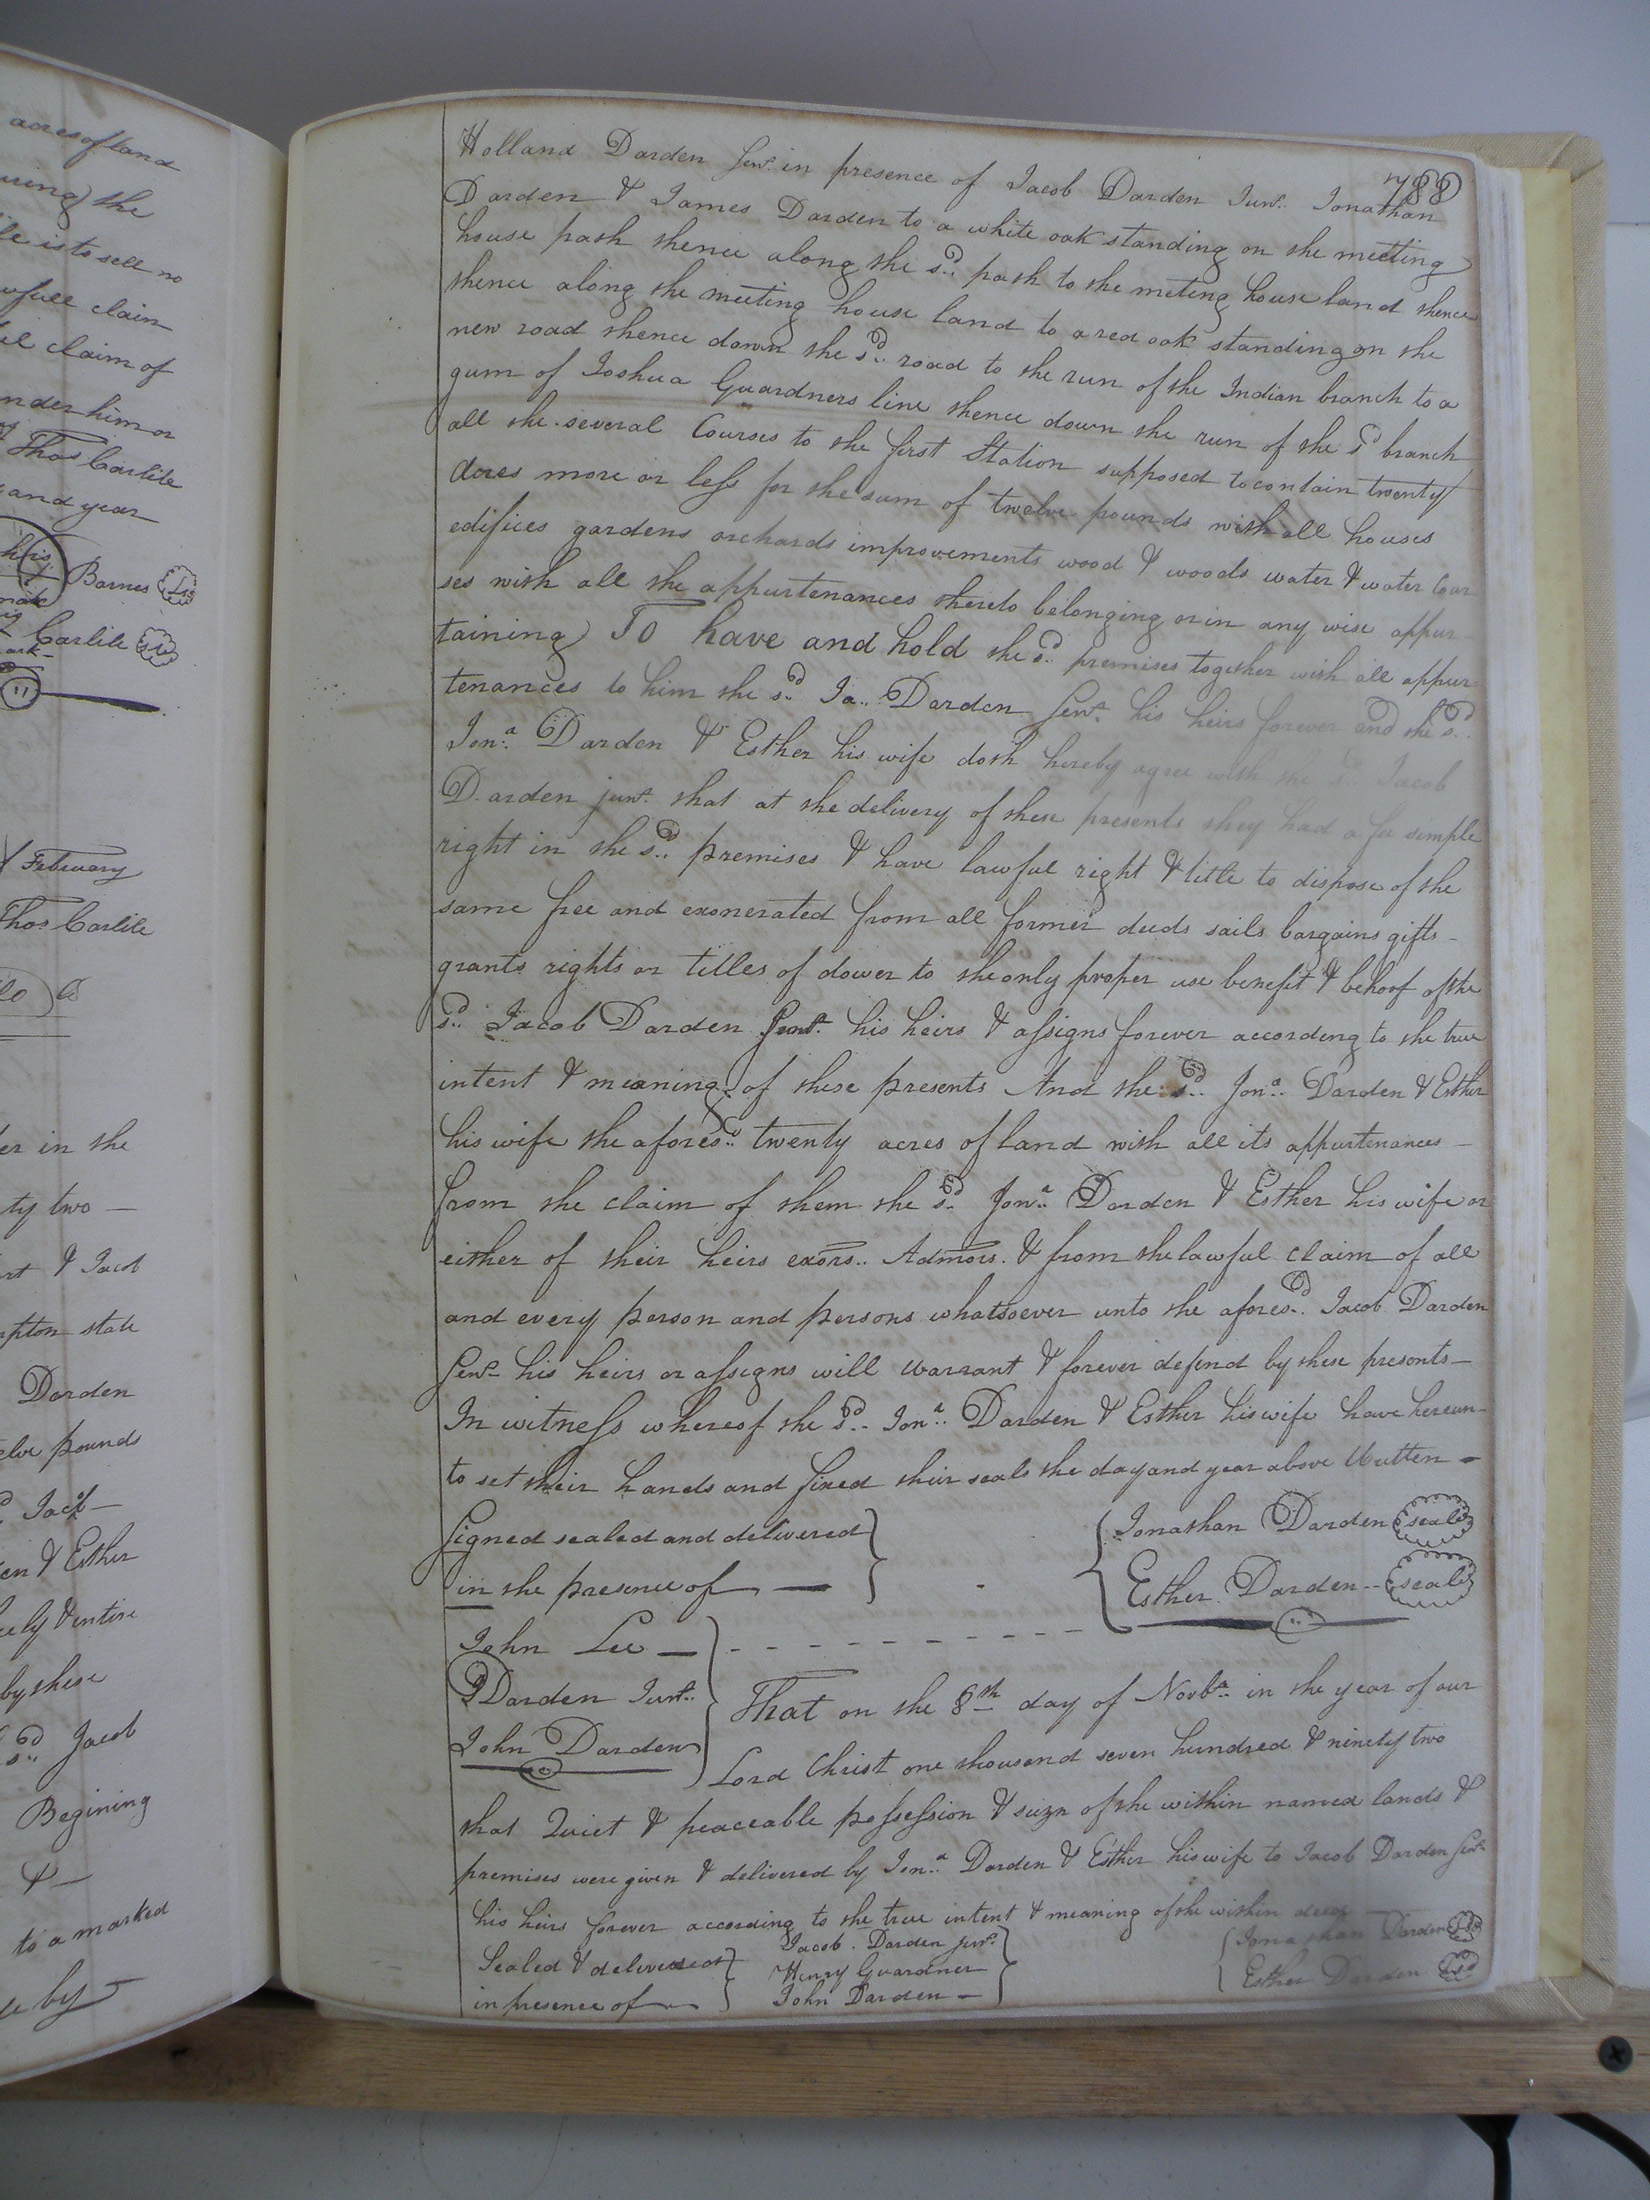 acres of land
the
is to sell no
claim
claim of
under him or
Thos Carlile
and year
his
Barnes
Carlile
February
Thos Carlile
in the
ty two —
& Jacob
state
Darden
pounds
Jacob —
& Esther
& entire
by these
sd.. Jacob
Begining
& —
to a marked
by —
788
Holland Darden Senr. in presence of Jacob Darden Junr. Jonathan
Darden & James Darden to a white oak standing on the meeting
house path thence along the sd.. path to the meting house land thence
thence along the meeting house land to a red oak standing on the
new road thence down the sd.. road to the run of the Indian branch to a
gum of Joshua Guardners line thence down the run of the sd branch
all the several Courses to the first Station supposed to contain twenty
acres more or less for the sum of twelve pounds with all houses
edifices gardens orchards improvements wood & woods water & water Cour
ses with all the appurtenances thereto belonging or in any wise appur
taining TO have and hold the sd.. premises together with all appur
tenances to him the sd.. Ja.. Darden Senr. his heirs forever and the sd..
Jona. Darden & Esther his wife doth hereby agree with the sd.. Jacob
Darden junr. that at the delivery of these presents they had a fee simple
right in the sd.. premises & have lawful right & title to dispose of the
same free and exonerated from all former deeds sails bargains gifts —
grants rights or titles of dower to the only proper use benefit & behoof of the
sd.. Jacob Darden Senr. his heirs & assigns forever according to the true
intent & meaning of these presents And the sd.. Jona.. Darden & Esther
his wife the aforesd.. twenty acres of land with all its appurtenances —
from the claim of them the sd.. Jona.. Darden & Esther his wife or
either of their heirs exors.. Admors. & from the lawful claim of all
and every person and persons whatsoever unto the aforesd.. Jacob Darden
Senr. his heirs or assigns will warrant & forever defend by these presents —
In witness whereof the sd.. Jona.. Darden & Esther his wife have hereun-
to set their hands and fixed their seals the day and year above Written —
Signed sealed and delivered
in the presence of —
Jonathan Darden seal
Esther Darden -- seal
John Lee —
Darden Junr..
John Darden
That on the 8th day of Novbr.. in the year of our
Lord Christ one thousand seven hundred & ninety two
that Quiet & peaceable possession & seizn of the within named lands &
premises were given & delivered by Jona.. Darden & Esther his wife to Jacob Darden Senr.
his heirs forever according to the true intent & meaning of the within deed
Sealed & delivered
in presence of —
Jacob Darden junr.
Henry Guardner
John Darden —
Jonathan Darden
Esther Darden